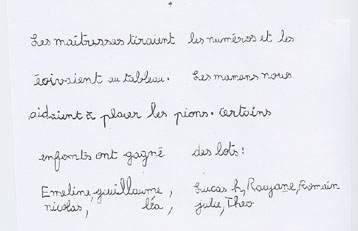 Les maîtresses tiraient les numéros et les
écrivaient au tableau. Les mamans nous
aidaient à placer les pions. Certains
enfants ont gagné des lots :
Emeline, guillaume, Lucas h, Rayane, Romain
nicolas, léa, julie, Théo